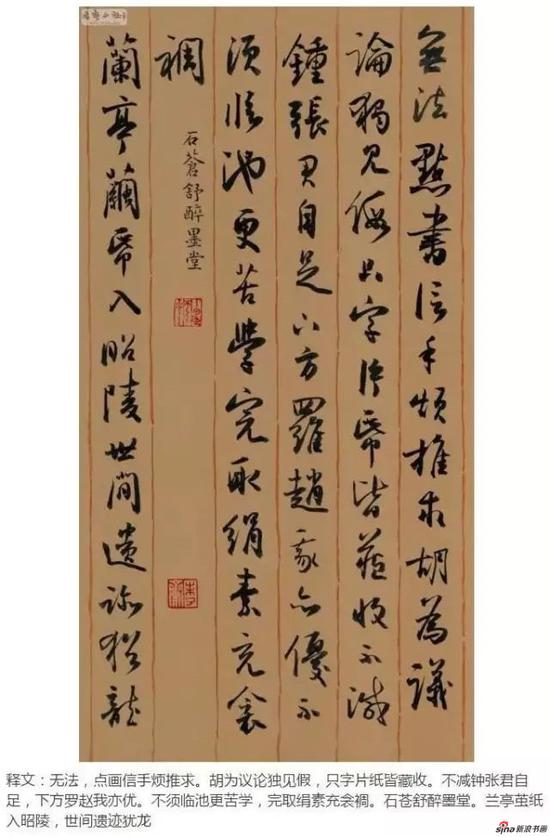 無法點畫信手煩推求胡為議
論獨見假只字片帋皆藏收不減
鍾張君自足下方羅趙我亦優不
須臨池更苦學完取絹素充衾
裯
石蒼舒醉墨堂
蘭亭繭帋入昭陵世間遺跡猶龍
释文：无法，点画信手烦推求。胡为议论独见假，只字片纸皆藏收。不减钟张君自
足，下方罗赵我亦优。不须临池更苦学，完取绢素充衾裯。石苍舒醉墨堂。兰亭茧纸
入昭陵，世间遗迹犹龙
sina新浪书画